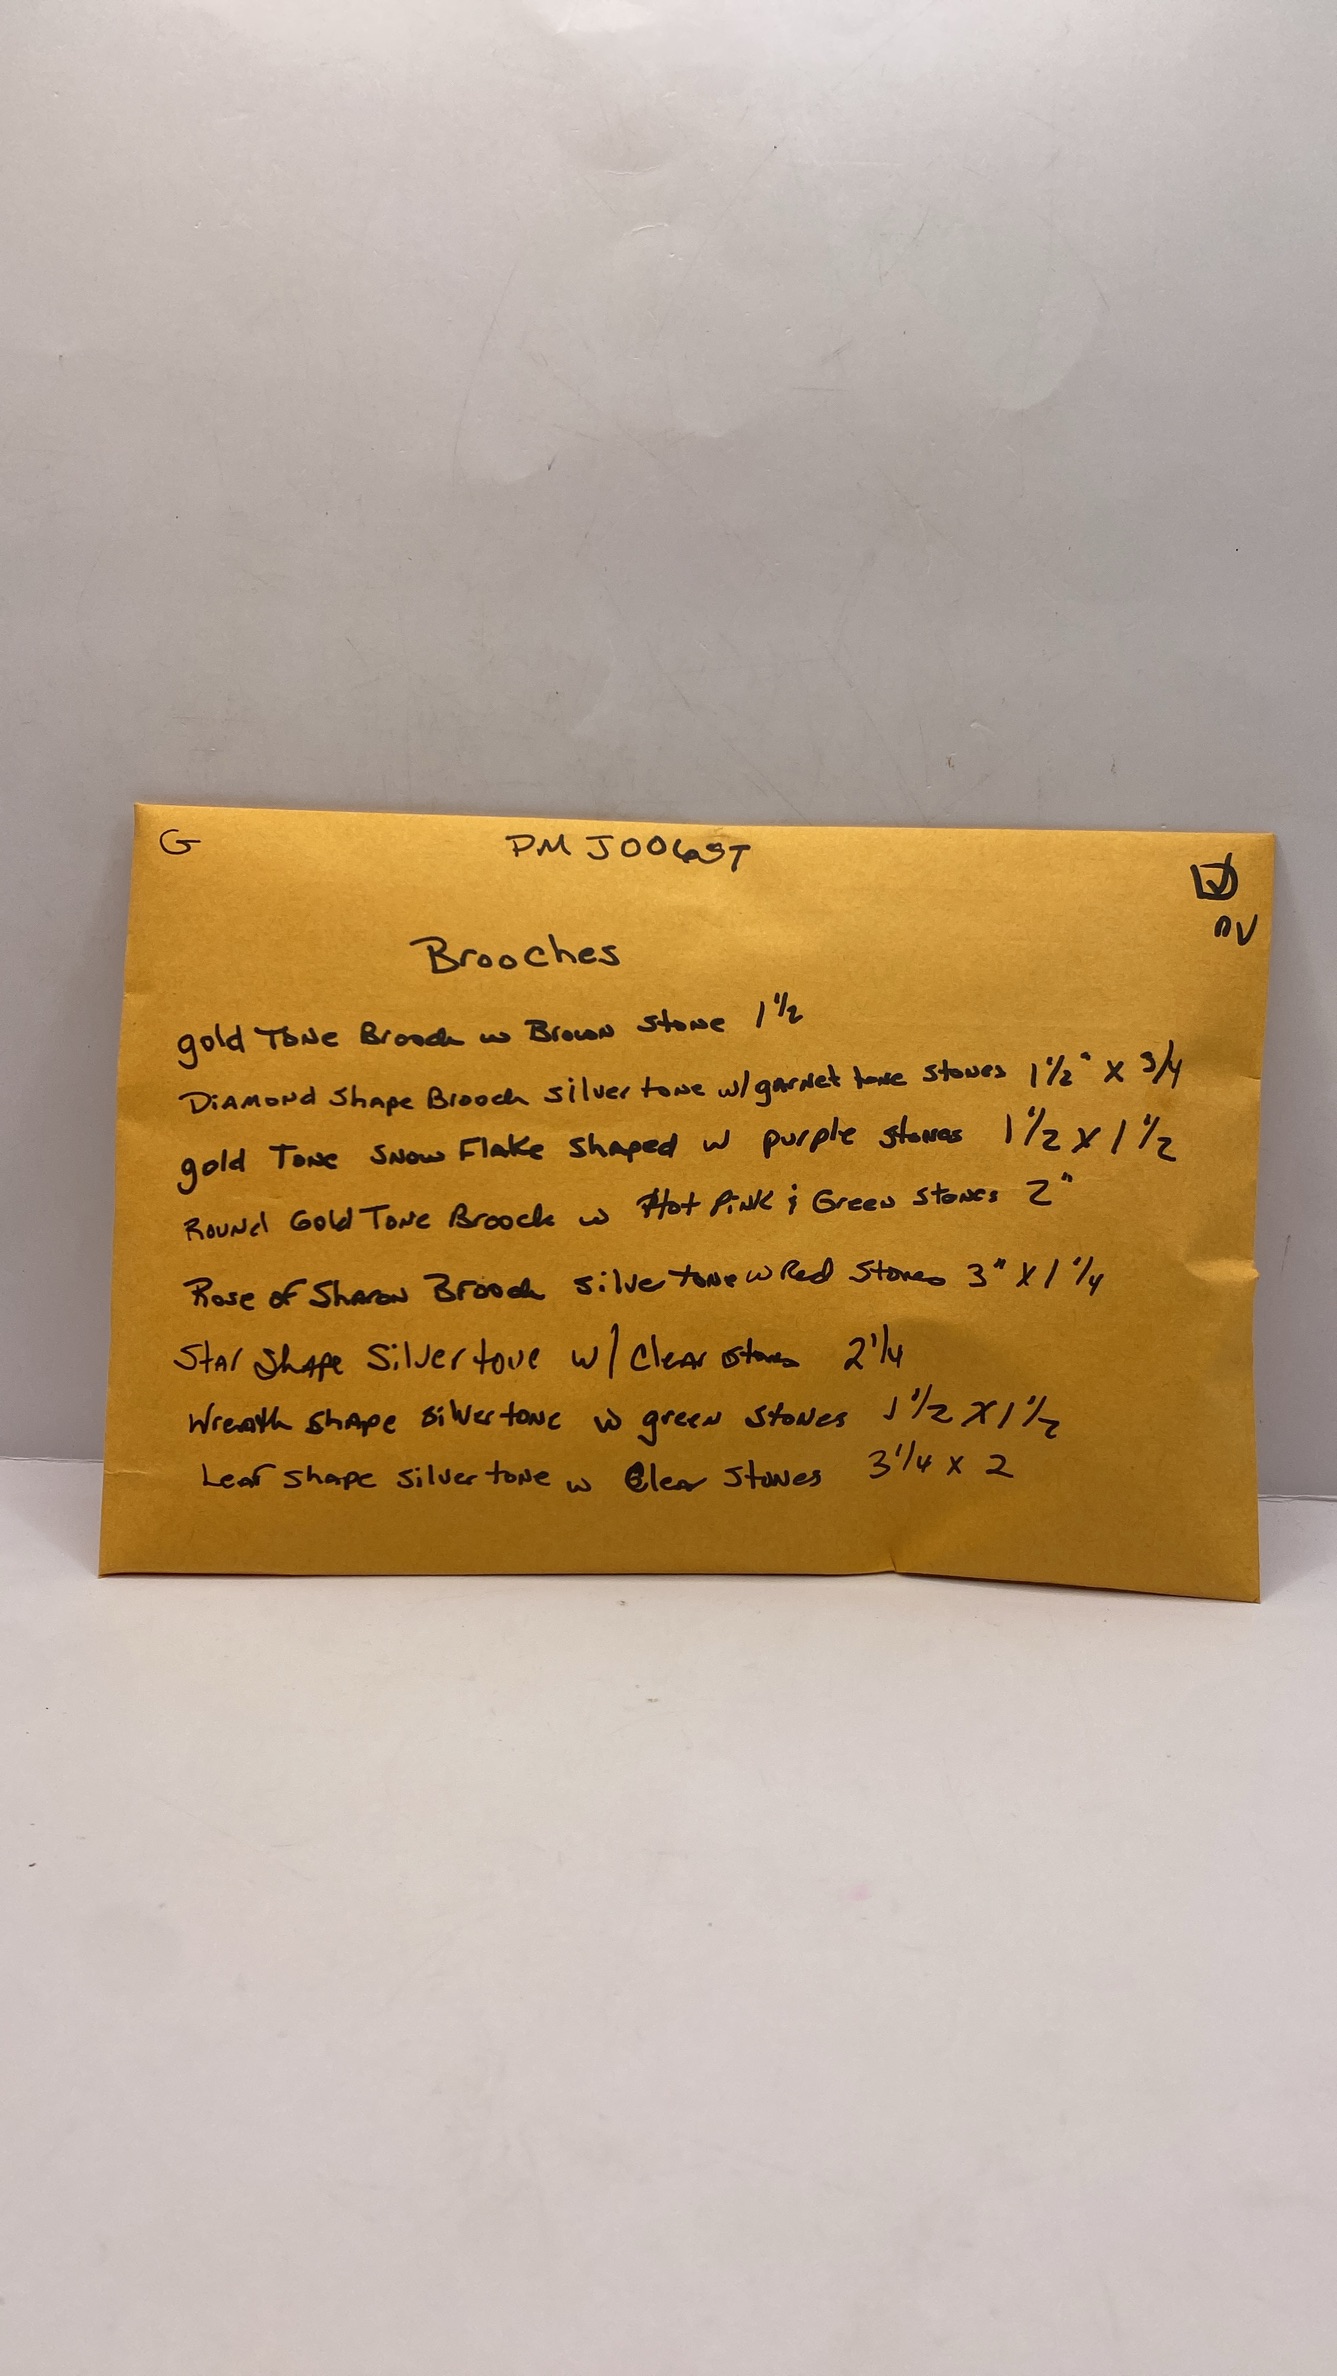 G
PM J0065T
nV
Brooches
gold Tone Brooch w Brown Stone 1 1/2
Diamond Shape Brooch silver tone w/ garnet tone stones 1 1/2" x 3/4
gold Tone Snow Flake Shaped w purple stones 1 1/2 x 1 1/2
Round Gold Tone Brooch w Hot Pink & Green Stones 2"
Rose of Sharon Brooch silver tone w Red Stones 3" x 1 1/4
Star Shape Silver tone w/ Clear stones 2 1/4
Wreath Shape silver tone w green stones 1 1/2 x 1 1/2
Leaf shape silver tone w Clear Stones 3 1/4 x 2